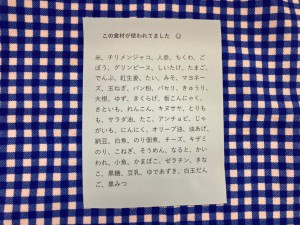 この食材が使われてました ☺
米、チリメンジャコ、人参、ちくわ、ご
ぼう、グリンピース、しいたけ、たまご、
でんぶ、紅生姜、たい、みそ、マヨネー
ズ、玉ねぎ、パン粉、パセリ、きゅうり、
大根、ゆず、きくらげ、板こんにゃく、
さといも、れんこん、キヌサヤ、とりも
も、サラダ油、たこ、アンチョビ、じゃ
がいも、にんにく、オリーブ油、油あげ、
納豆、白魚、のり佃煮、チーズ、キザミ
のり、こねぎ、そうめん、なると、かい
われ、小魚、かまぼこ、ゼラチン、きな
こ、黒糖、豆乳、ゆであずき、白玉だん
ご、黒みつ